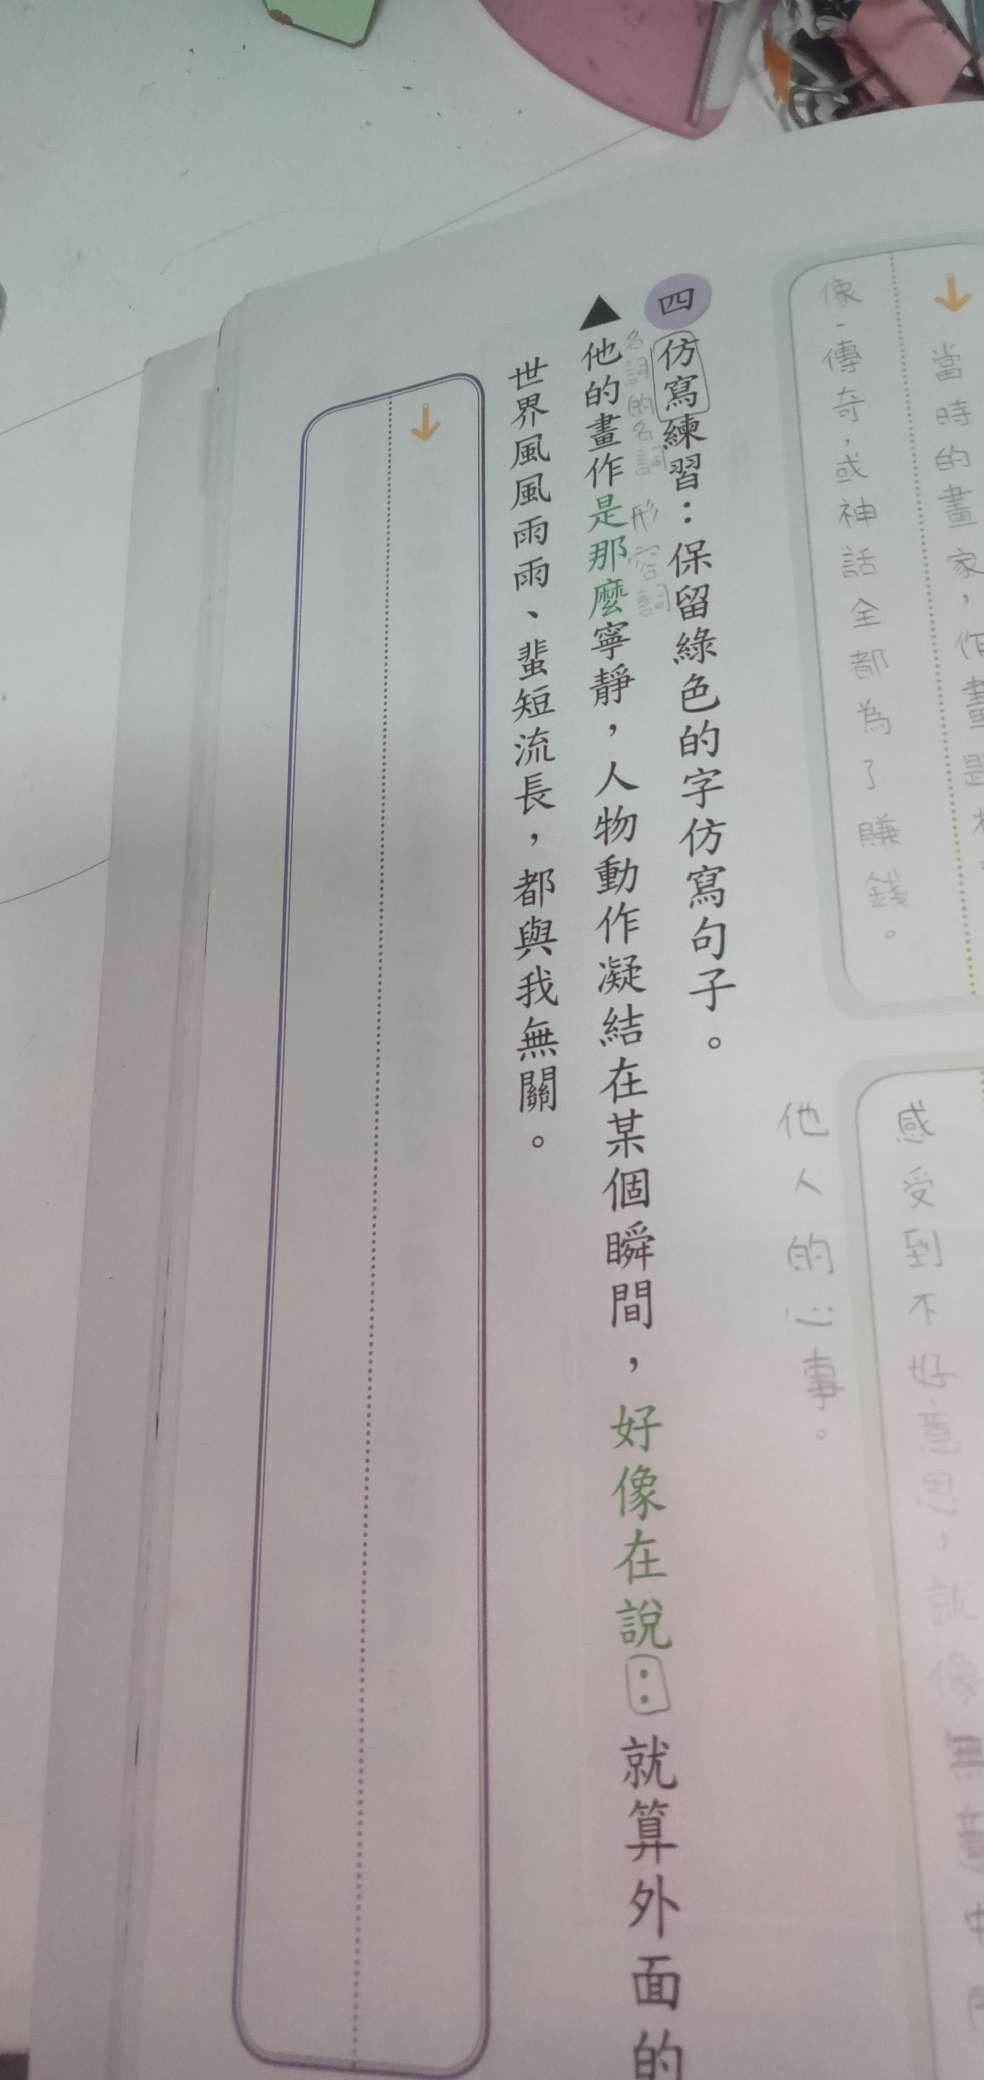 當時的畫家，作畫
像、傳奇，或神話全都為了賺錢。
感受到不好意思，就像無意中
他人的心事。
四 仿寫練習：保留綠色的字仿寫句子。
名詞的名詞 形容詞
▲他的畫作是那麼寧靜，人物動作凝結在某個瞬間，好像在說：就算外面的
世界風風雨雨、蜚短流長，都與我無關。